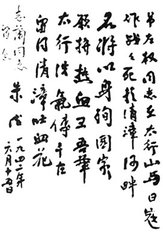 吊左权同志在太行山与日寇
作战战死於清漳河畔
名将以身殉国家
愿拼热血卫吾华
太行浩气传千古
留得清漳吐血花
朱德
一九四二年
六月十五日
志兰同志
留念